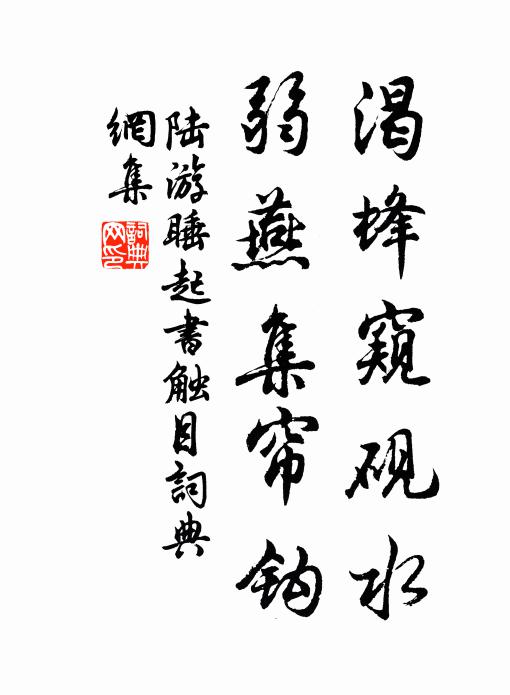 渴蜂窺硯水
弱燕集帘鈎
陆游睡起書触目詞典
網集
詞典
网印